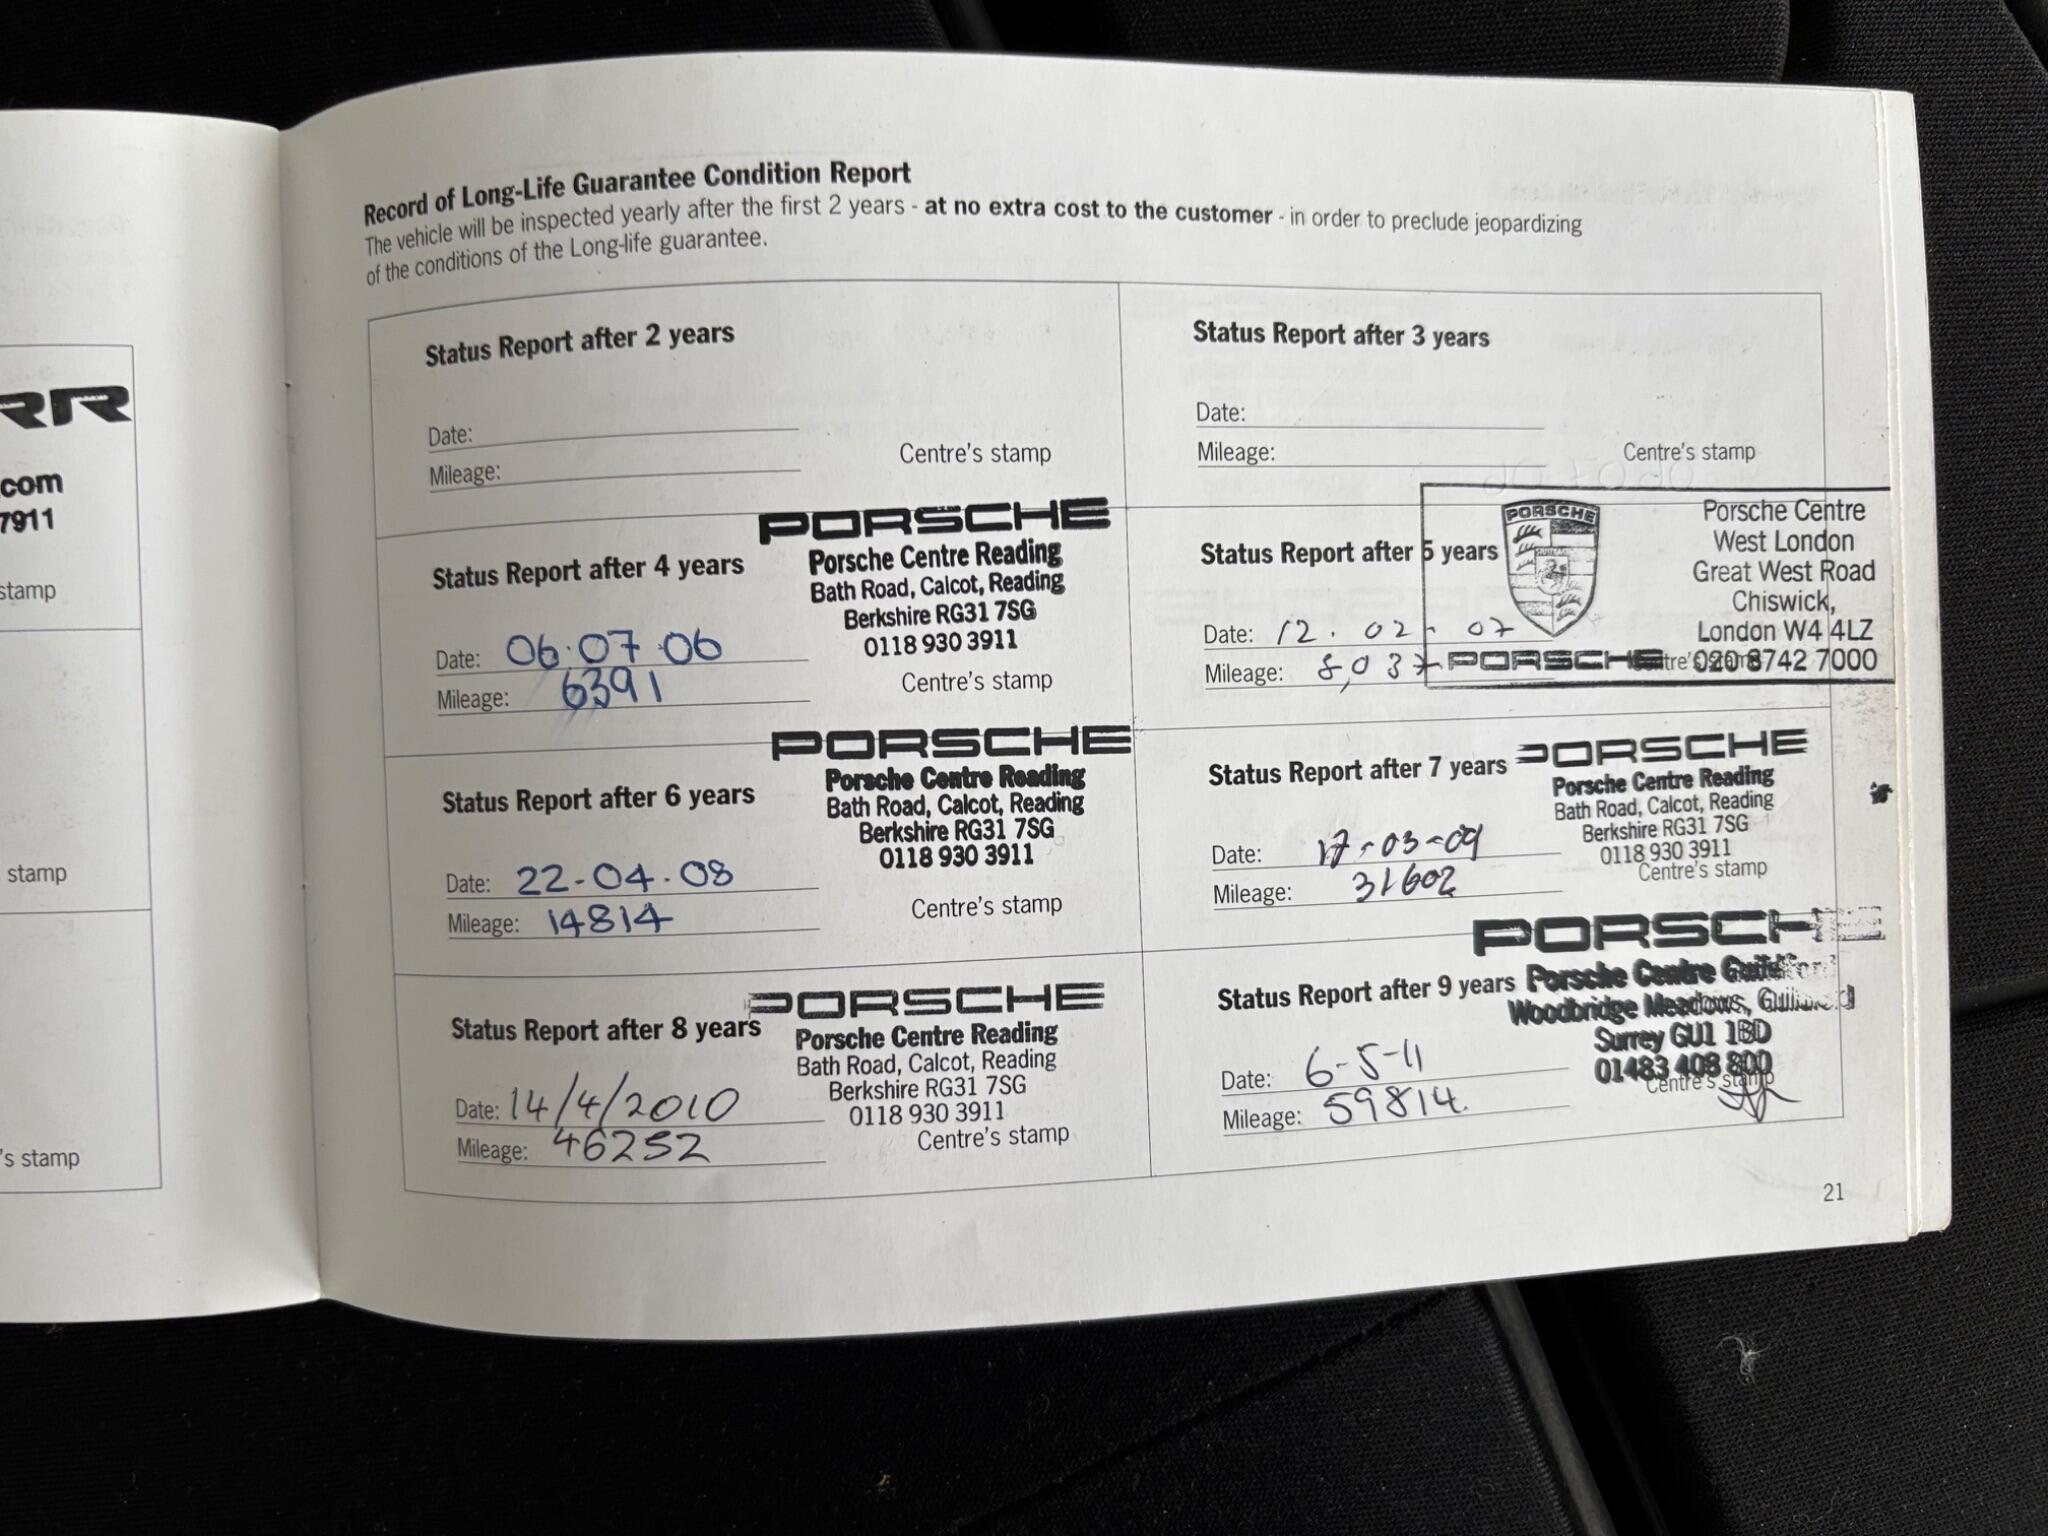 RR
com
7911
stamp
stamp
's stamp
Record of Long-Life Guarantee Condition Report
The vehicle will be inspected yearly after the first 2 years - at no extra cost to the customer - in order to preclude jeopardizing
of the conditions of the Long-life guarantee.
Status Report after 2 years
Date:
Mileage:
Centre's stamp
Status Report after 3 years
Date:
Mileage:
Centre's stamp
Status Report after 4 years
Date: 06.07.06
Mileage: 6391
PORSCHE
Porsche Centre Reading
Bath Road, Calcot, Reading
Berkshire RG31 7SG
0118 930 3911
Centre's stamp
Status Report after 5 years
Date: 12.02.07
Mileage: 8,037
PORSCHE
PORSCHE
Porsche Centre
West London
Great West Road
Chiswick,
London W4 4LZ
020 8742 7000
Status Report after 6 years
Date: 22-04.08
Mileage: 14814
PORSCHE
Porsche Centre Reading
Bath Road, Calcot, Reading
Berkshire RG31 7SG
0118 930 3911
Centre's stamp
Status Report after 7 years
Date: 17-03-09
Mileage: 31602
PORSCHE
Porsche Centre Reading
Bath Road, Calcot, Reading
Berkshire RG31 7SG
0118 930 3911
Centre's stamp
Status Report after 8 years
Date: 14/4/2010
Mileage: 46252
PORSCHE
Porsche Centre Reading
Bath Road, Calcot, Reading
Berkshire RG31 7SG
0118 930 3911
Centre's stamp
Status Report after 9 years
Date: 6-5-11
Mileage: 59814.
PORSCHE
Porsche Centre Guildford
Woodbridge Meadows, Guildford
Surrey GU1 1BD
01483 408 800
Centre's stamp
21